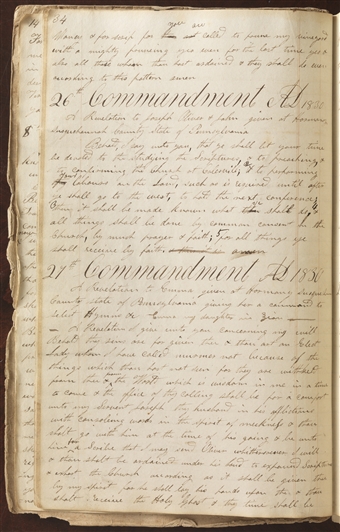 34
Coney & for soap for thou art called to prune my vineyard
with a mighty pruneing yea even for the last time yea &
also all those whom thou hast ordained & they shall do even
according to this pattern amen
26th Commandment AD 1830
A Revelation to Joseph Oliver & John given at Harmony
Susquehannah County State of Pennsylvania
Behold I say unto you, that ye shall let your time
be devoted to the studying the Scriptures, & to preaching, &
to confirming the Church at Colesville; & to performing
your labours on the land, such as is required, until after
ye shall go to the west, to hold the next conference;
then it shall be made known what ye shall do, &
all things shall be done by common consent in the
Church, by much prayer & faith; for all things ye
shall receive by faith
27th Commandment AD 1830
A Revelation to Emma given at Harmony Susquehan
County state of Pennsylvania giving her a command to
select Hymns &c Emma my daughter in Zion
A Revelation I give unto you concerning my will
Behold thy sins are for given thee & thou art an Elect
Lady whom I have called murmer not because of the
things which thou hast not seen for they are withheld
from thee & the World which is wisdom in me in a time
to come & the office of thy calling shall be for a comfort
unto my servent Joseph thy husband in his afflictions
with consoleing words in the spirit of meekness & thou
shalt go with him at the time of his going & be unto
him for a Scribe that I may send Oliver whithersoever I will
& thou shalt be ordained under his hand to expound Scriptures
& exhort the Church according as it shall be given thee
by my spirit for he shall lay his hands upon thee & thou
shalt receive the Holy Ghost & thy time shall be